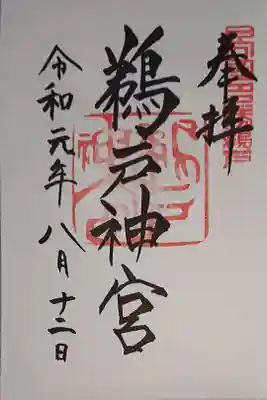 奉拝
鵜戸神宮
令和元年八月十二日